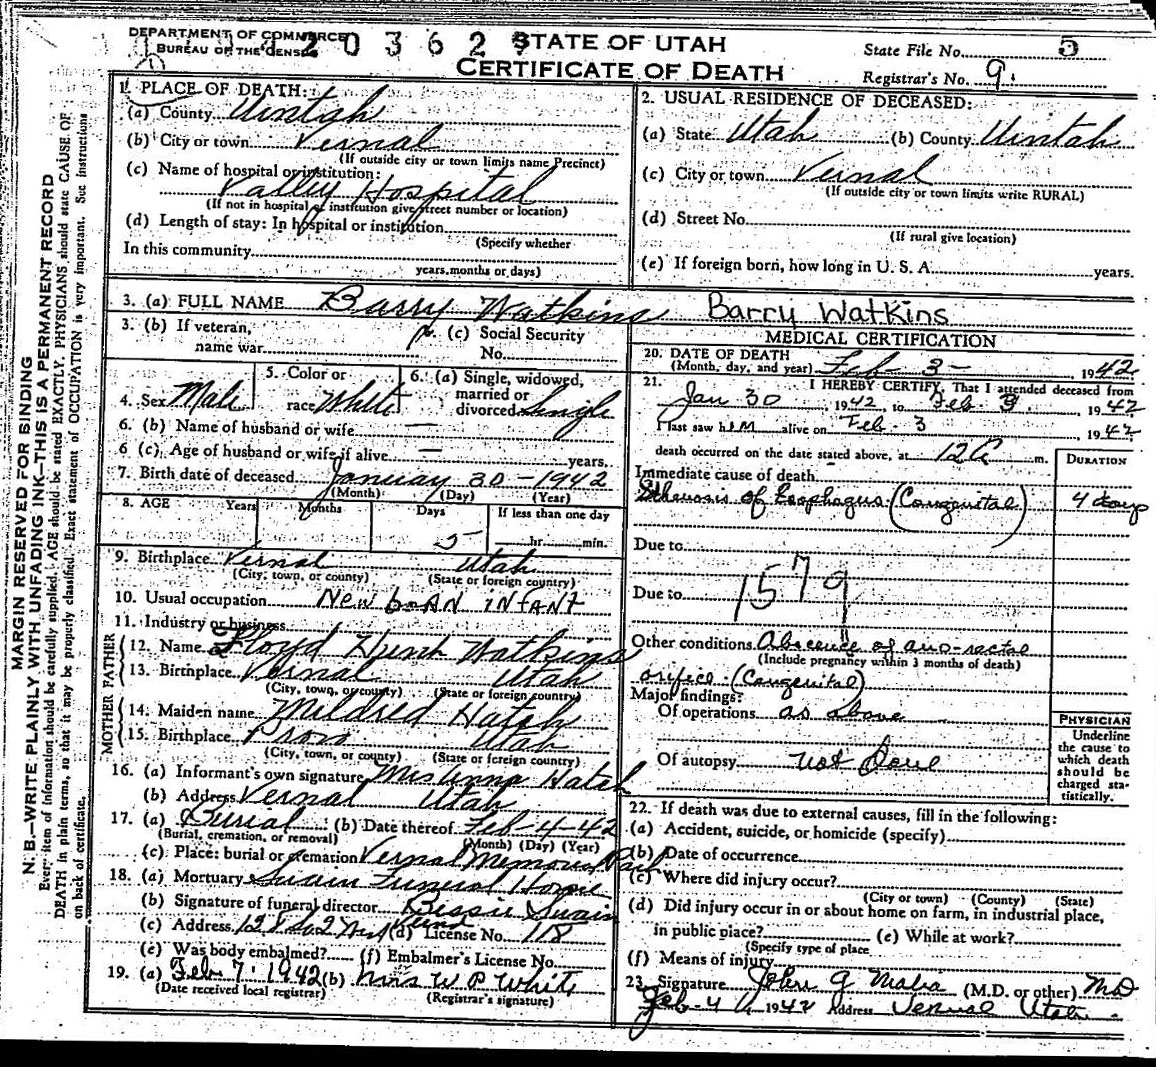 DEPARTMENT OF COMMERCE
BUREAU OF THE CENSUS
STATE OF UTAH
CERTIFICATE OF DEATH
State File No. 5
Registrar's No. 9
MARGIN RESERVED FOR BINDING
N. B.—WRITE PLAINLY WITH UNFADING INK—THIS IS A PERMANENT RECORD
Every item of information should be carefully supplied. AGE should be stated EXACTLY. PHYSICIANS should state CAUSE OF
DEATH in plain terms, so that it may be properly classified. Exact statement of OCCUPATION is very important. See instructions
on back of certificate.
1. PLACE OF DEATH:
(a) County Uintah
(b) City or town Vernal
(If outside city or town limits name Precinct)
(c) Name of hospital or institution:
Valley Hospital
(If not in hospital or institution give street number or location)
(d) Length of stay: In hospital or institution
(Specify whether
In this community
years, months or days)
2. USUAL RESIDENCE OF DECEASED:
(a) State Utah (b) County Uintah
(c) City or town Vernal
(If outside city or town limits write RURAL)
(d) Street No.
(If rural give location)
(e) If foreign born, how long in U. S. A. years.
3. (a) FULL NAME Barry Watkins Barry Watkins
3. (b) If veteran,
name war
(c) Social Security
No.
4. Sex Male
5. Color or
race White
6. (a) Single, widowed,
married or
divorced Single
6. (b) Name of husband or wife —
6 (c). Age of husband or wife if alive — years.
7. Birth date of deceased January 30 - 1942
(Month) (Day) (Year)
8. AGE Years Months Days If less than one day
5 hr. min.
9. Birthplace Vernal Utah
(City, town, or county) (State or foreign country)
10. Usual occupation New born infant
11. Industry or business
FATHER
12. Name Floyd Watkins
13. Birthplace Vernal Utah
(City, town, or county) (State or foreign country)
MOTHER
14. Maiden name Mildred Hatch
15. Birthplace Provo Utah
(City, town, or county) (State or foreign country)
16. (a) Informant's own signature Mrs Anna Hatch
(b) Address Vernal Utah
17. (a) Burial (b) Date thereof Feb-4-42
(Burial, cremation, or removal) (Month) (Day) (Year)
(c) Place: burial or cremation Vernal Memorial Park
18. (a) Mortuary Swain Funeral Home
(b) Signature of funeral director Bessie Swain
(c) Address (d) License No. 118
(e) Was body embalmed? (f) Embalmer's License No.
19. (a) Feb. 7. 1942 (b) Mrs W P White
(Date received local registrar) (Registrar's signature)
MEDICAL CERTIFICATION
20. DATE OF DEATH
(Month, day, and year) Feb 3 - , 1942
21. I HEREBY CERTIFY, That I attended deceased from
Jan 30, 1942, to Feb. 3, 1942
I last saw him alive on Feb. 3, 1942
death occurred on the date stated above, at 12 m.
DURATION
Immediate cause of death
of Esophagus (Congenital) 4 days
Due to
Due to
1579
Other conditions Abscence of ano-rectal
(Include pregnancy within 3 months of death)
orifice (Congenital)
Major findings:
Of operations as above
Of autopsy not done
PHYSICIAN
Underline
the cause to
which death
should be
charged sta-
tistically.
22. If death was due to external causes, fill in the following:
(a) Accident, suicide, or homicide (specify)
(b) Date of occurrence
(c) Where did injury occur?
(City or town) (County) (State)
(d) Did injury occur in or about home on farm, in industrial place,
in public place? (e) While at work?
(Specify type of place
(f) Means of injury
23. Signature John G Malia (M.D. or other) MD
Feb-4 1942 Address Vernal Utah